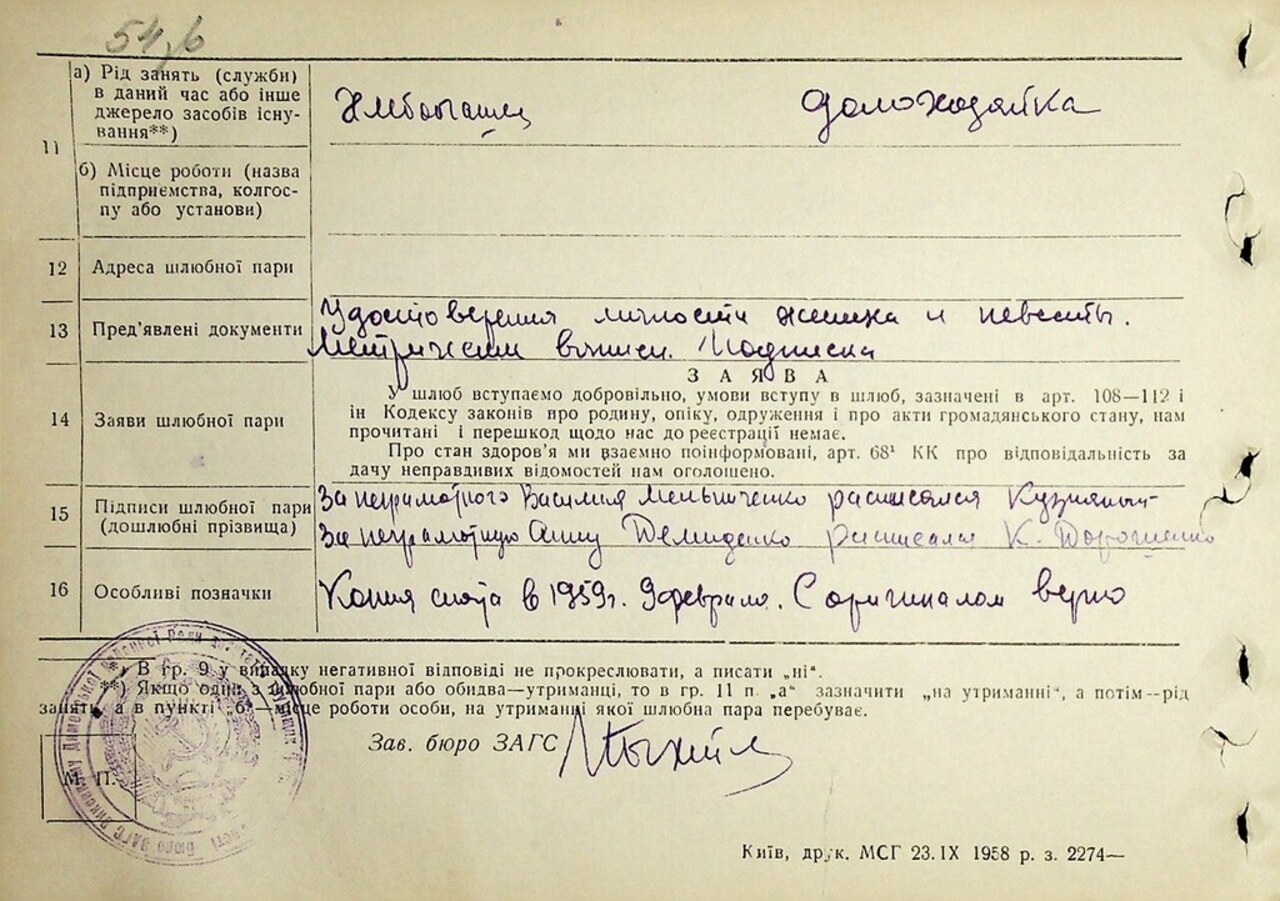 54,б
11
а) Рід занять (служби)
в даний час або інше
джерело засобів існу-
вання**)
Хлебопашец
Домохозяйка
б) Місце роботи (назва
підприємства, колгос-
пу або установи)
12 Адреса шлюбної пари
13 Пред'явлені документи
Удостоверения личности жениха и невесты.
Метрические выписи. Подписка
14 Заяви шлюбної пари
ЗАЯВА
У шлюб вступаємо добровільно, умови вступу в шлюб, зазначені в арт. 108—112 і
ін Кодексу законів про родину, опіку, одруження і про акти громадянського стану, нам
прочитані і перешкод щодо нас до реєстрації немає.
Про стан здоров'я ми взаємно поінформовані, арт. 68¹ КК про відповідальність за
дачу неправдивих відомостей нам оголошено.
15 Підписи шлюбної пари
(дошлюбні прізвища)
За неграмотного Василия Мельниченко расписался
За неграмотную Анну Демиденко расписался К. Дорошенко
16 Особливі позначки
Копия снята в 1959г. 9 февраля. С оригиналом верно
*) В гр. 9 у випадку негативної відповіді не прокреслювати, а писати „ні“.
**) Якщо один з шлюбної пари або обидва—утриманці, то в гр. 11 п. „а“ зазначити „на утриманні“, а потім—рід
занять, а в пункті „б“—місце роботи особи, на утриманні якої шлюбна пара перебуває.
Зав. бюро ЗАГС
М. П.
Київ, друк. МСГ 23. IX 1958 р. з. 2274—